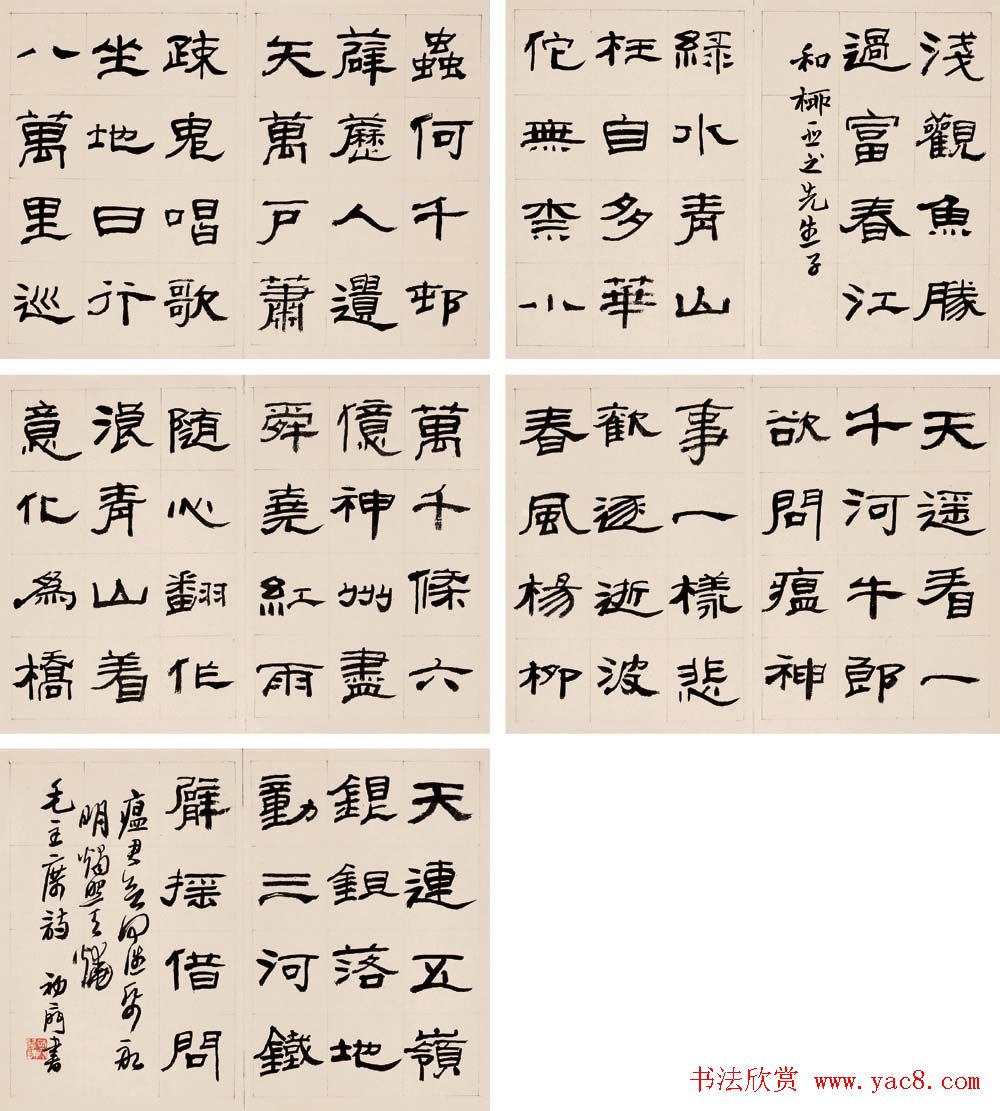 淺觀魚勝
過富春江
和柳亞之先生子
綠水青山
枉自多華
佗無柰小
蟲何千邨
薜藶人遺
矢萬戶蕭
疎鬼唱歌
坐地日行
八萬里巡
天遥看一
千河牛郎
欲問瘟神
事一樣悲
歡逐逝波
春風楊柳
萬千條六
億神州盡
舜堯紅雨
随心翻作
浪青山着
意化為橋
天連五嶺
銀鉏落地
動三河鐵
臂揺借問
瘟君欲何往紙船
明燭照天燒
毛主席詩 初 書
书法欣赏 www.yac8.com